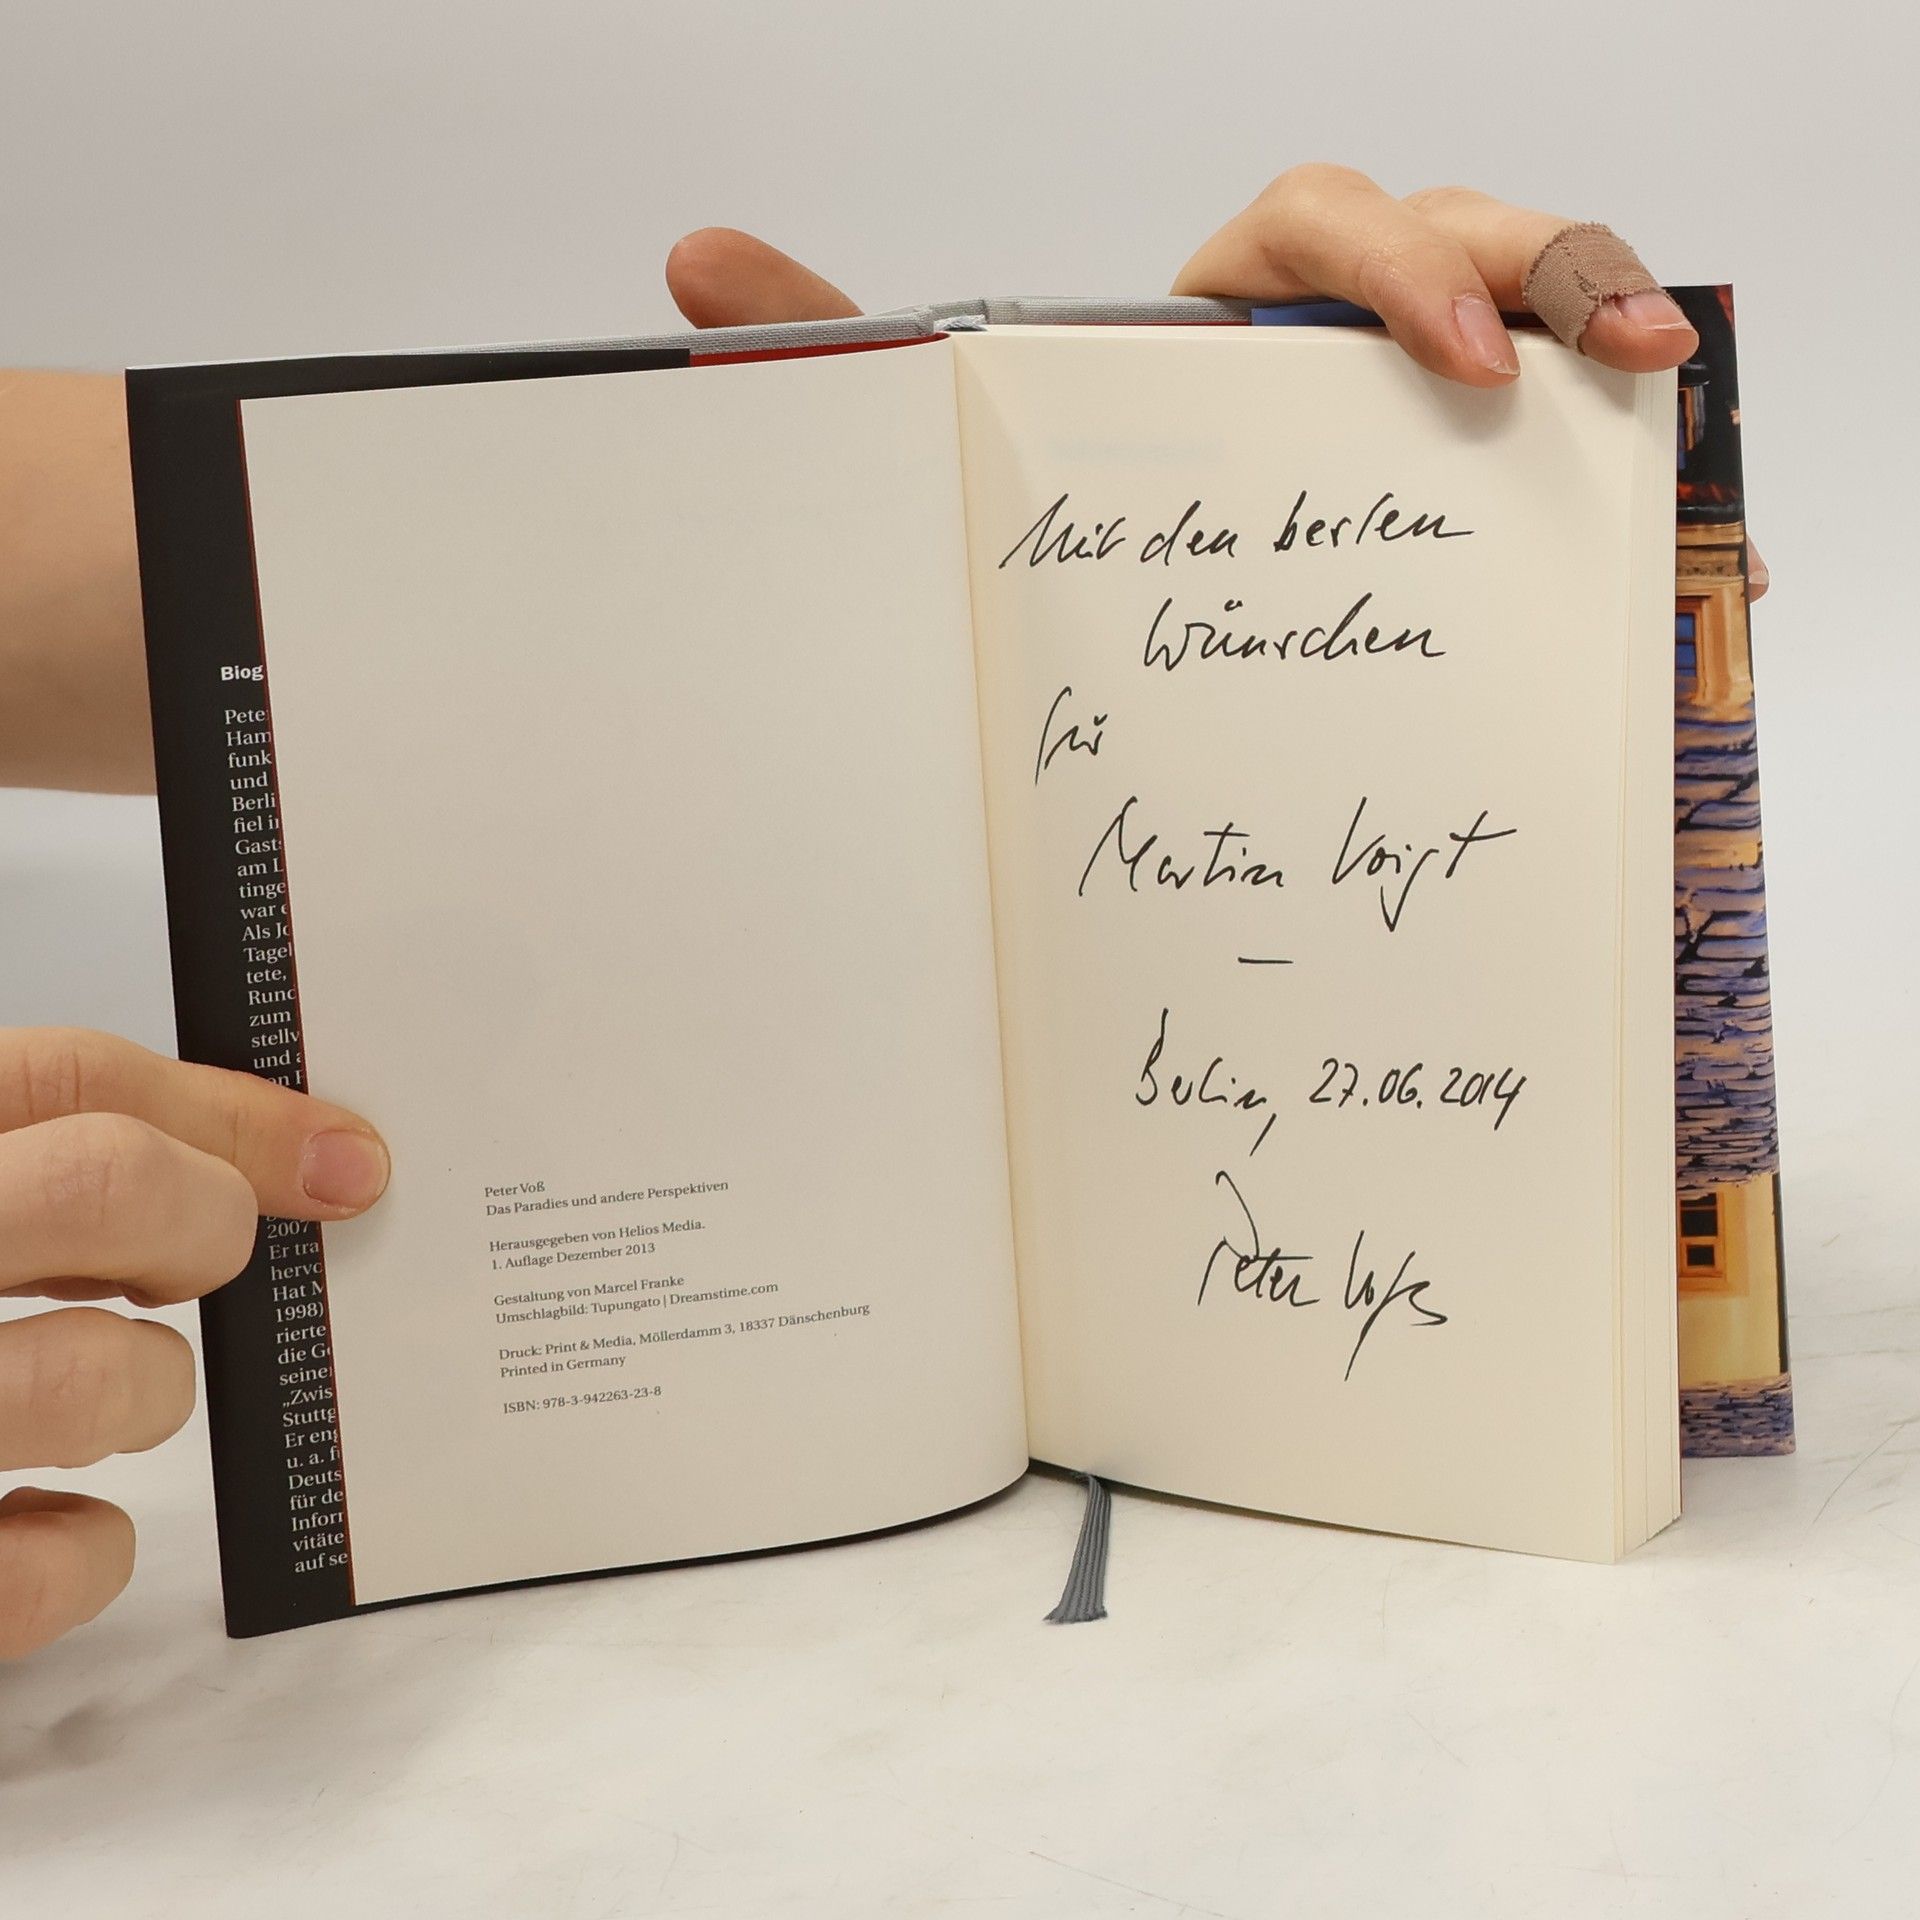 Biog
Pete
Ham
funk
und
Berli
fiel i
Gast
am L
tinge
war
Als J
Tagel
tete,
Rund
zum
stellv
und
on F
2007
Er tra
hervo
Hat M
1998)
rierte
die G
seine
„Zwis
Stuttg
Er eng
u. a. f
Deuts
für de
Inform
vitäte
auf se
Peter Voß
Das Paradies und andere Perspektiven
Herausgegeben von Helios Media.
1. Auflage Dezember 2013
Gestaltung von Marcel Franke
Umschlagbild: Tupungato | Dreamstime.com
Druck: Print & Media, Möllerdamm 3, 18337 Dänschenburg
Printed in Germany
ISBN: 978-3-942263-23-8
Mit den besten
Wünschen
für
Martin Voigt
—
Berlin, 27.06.2014
Peter Voß